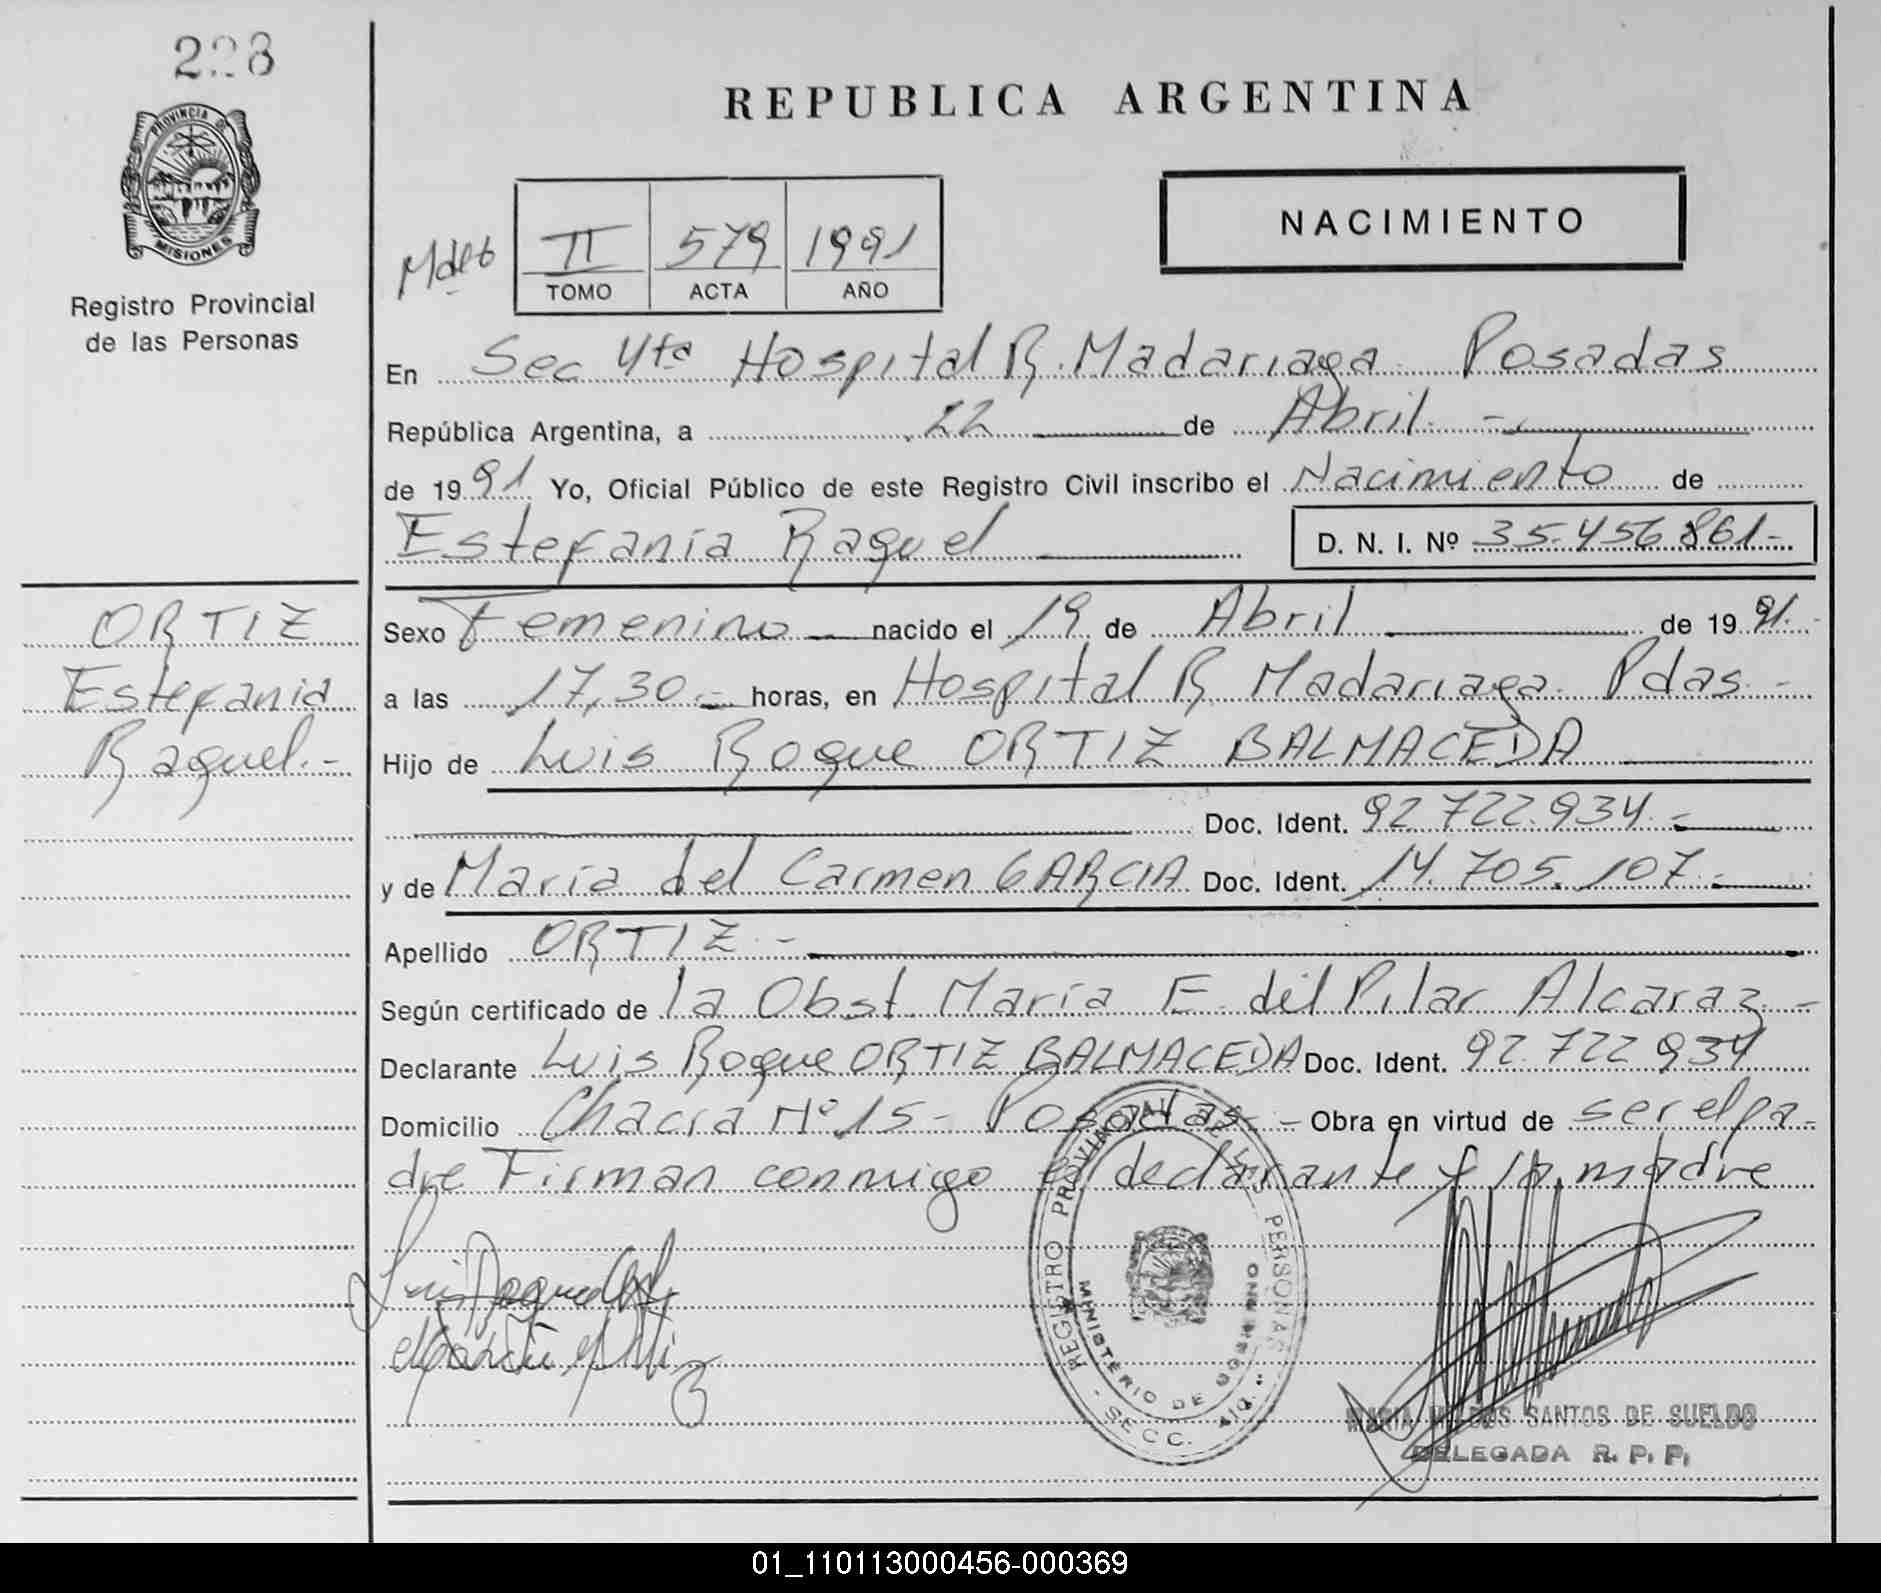 228
PROVINCIA DE
MISIONES
Registro Provincial
de las Personas
REPUBLICA ARGENTINA
NACIMIENTO
II 579 1991
TOMO ACTA AÑO
En Sec 4ta Hospital R. Madariaga Posadas
República Argentina, a 22 de Abril.-
de 1991 Yo, Oficial Público de este Registro Civil inscribo el Nacimiento de
Estefanía Raquel D. N. I. Nº 35.456.861-
ORTIZ
Estefania
Raquel.-
Sexo Femenino nacido el 19 de Abril de 1991.
a las 17,30.- horas, en Hospital R Madariaga Pdas.-
Hijo de Luis Roque ORTIZ BALMACEDA
Doc. Ident. 92.722.934.-
y de María del Carmen GARCIA Doc. Ident. 14.705.107.-
Apellido ORTIZ.-
Según certificado de la Obst. María E. del Pilar Alcaraz.-
Declarante Luis Roque ORTIZ BALMACEDA Doc. Ident. 92.722.934
Domicilio Chacra Nº 15- Posadas.- Obra en virtud de ser el pa-
dre Firman conmigo el declarante y la madre
REGISTRO PROVINCIAL DE LAS PERSONAS
MINISTERIO DE GOBIERNO
SECC.
MARIA M. DOS SANTOS DE SUELDO
DELEGADA R. P. P.
01_110113000456-000369